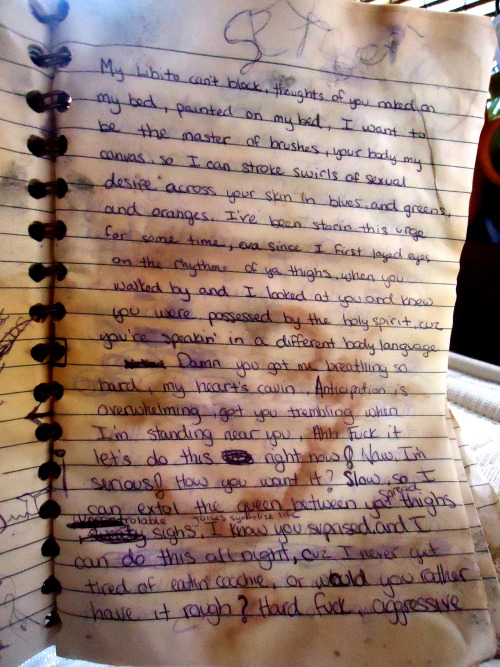 My libito can't block, thoughts of you naked on
my bed, painted on my bed, I want to
be the master of brushes, your body my
canvas, so I can stroke swirls of sexual
desire across your skin in blues, and greens,
and oranges. I've been storin this urge
for some time, eva since I first layed eyes
on the rhythm of ya thighs, when you
walked by and I looked at you and knew
you were possessed by the holy spirit, cuz
you're speakin' in a different body language
Damn you got me breathing so
hard, my heart's cavin, Anticipation is
overwhelming, got you trembling when
I'm standing near you, Ahh Fuck it
let's do this right now! Naw, I'm
serious! How you want it? Slow, so I
spread
can extol the queen between yat thighs
rolable noises symbolize life
sighs, I know you suprised, and I
can do this all night, cuz I never get
tired of eatin' coochie, or would you rather
have it rough? Hard fuck, aggressive